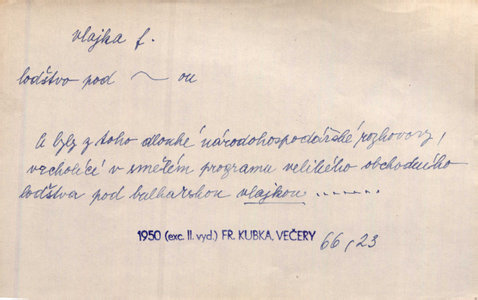 vlajka f.
loďstvo pod ~ ou
A byly z toho dlouhé národohospodářské rozhovory,
vrcholící v smělém programu velikého obchodního
loďstva pod bulharskou vlajkou .......
1950 (exc. II. vyd.) FR. KUBKA, VEČERY 66, 23